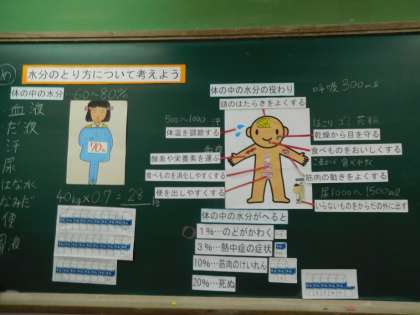 め
水分のとり方について考えよう
体の中の水分…60~80%
血液
だ液
汗
尿
はな水
なみだ
便
70%
40kg×0.7=28
体の中の水分の役わり
頭のはたらきをよくする
呼吸300mL
500~1000 汗
体温を調節する
酸素や栄養素を運ぶ
食べものを消化しやすくする
便を出しやすくする
ほこり ゴミ 花粉
乾燥から目を守る
食べものをおいしくする
筋肉の動きをよくする
尿1000~1500mL
いらないものをからだの外に出す
体の中の水分がへると
1%…のどがかわく
3%…熱中症の症状
10%…筋肉のけいれん
20%…死ぬ